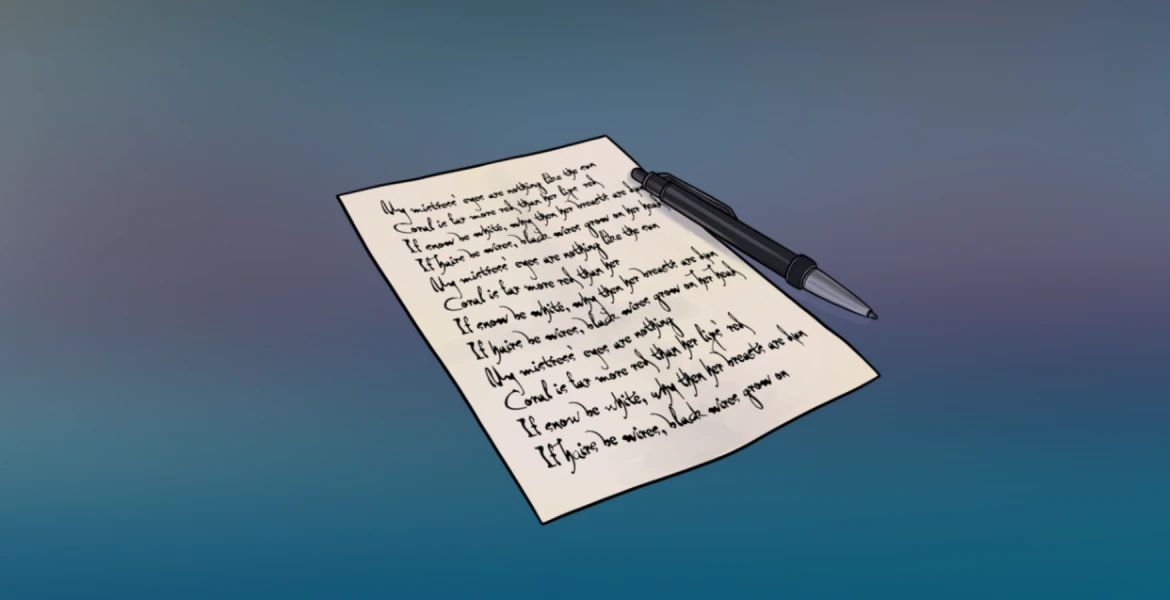 My mistress' eyes are nothing like the sun
Coral is far more red than her lips' red
If snow be white, why then her breasts are dun
If hairs be wires, black wires grow on her head
My mistress' eyes are nothing like the sun
Coral is far more red than her
If snow be white, why then her breasts are dun
If hairs be wires, black wires grow on her head
My mistress' eyes are nothing
Coral is far more red than her lips' red
If snow be white, why then her breasts are dun
If hairs be wires, black wires grow on